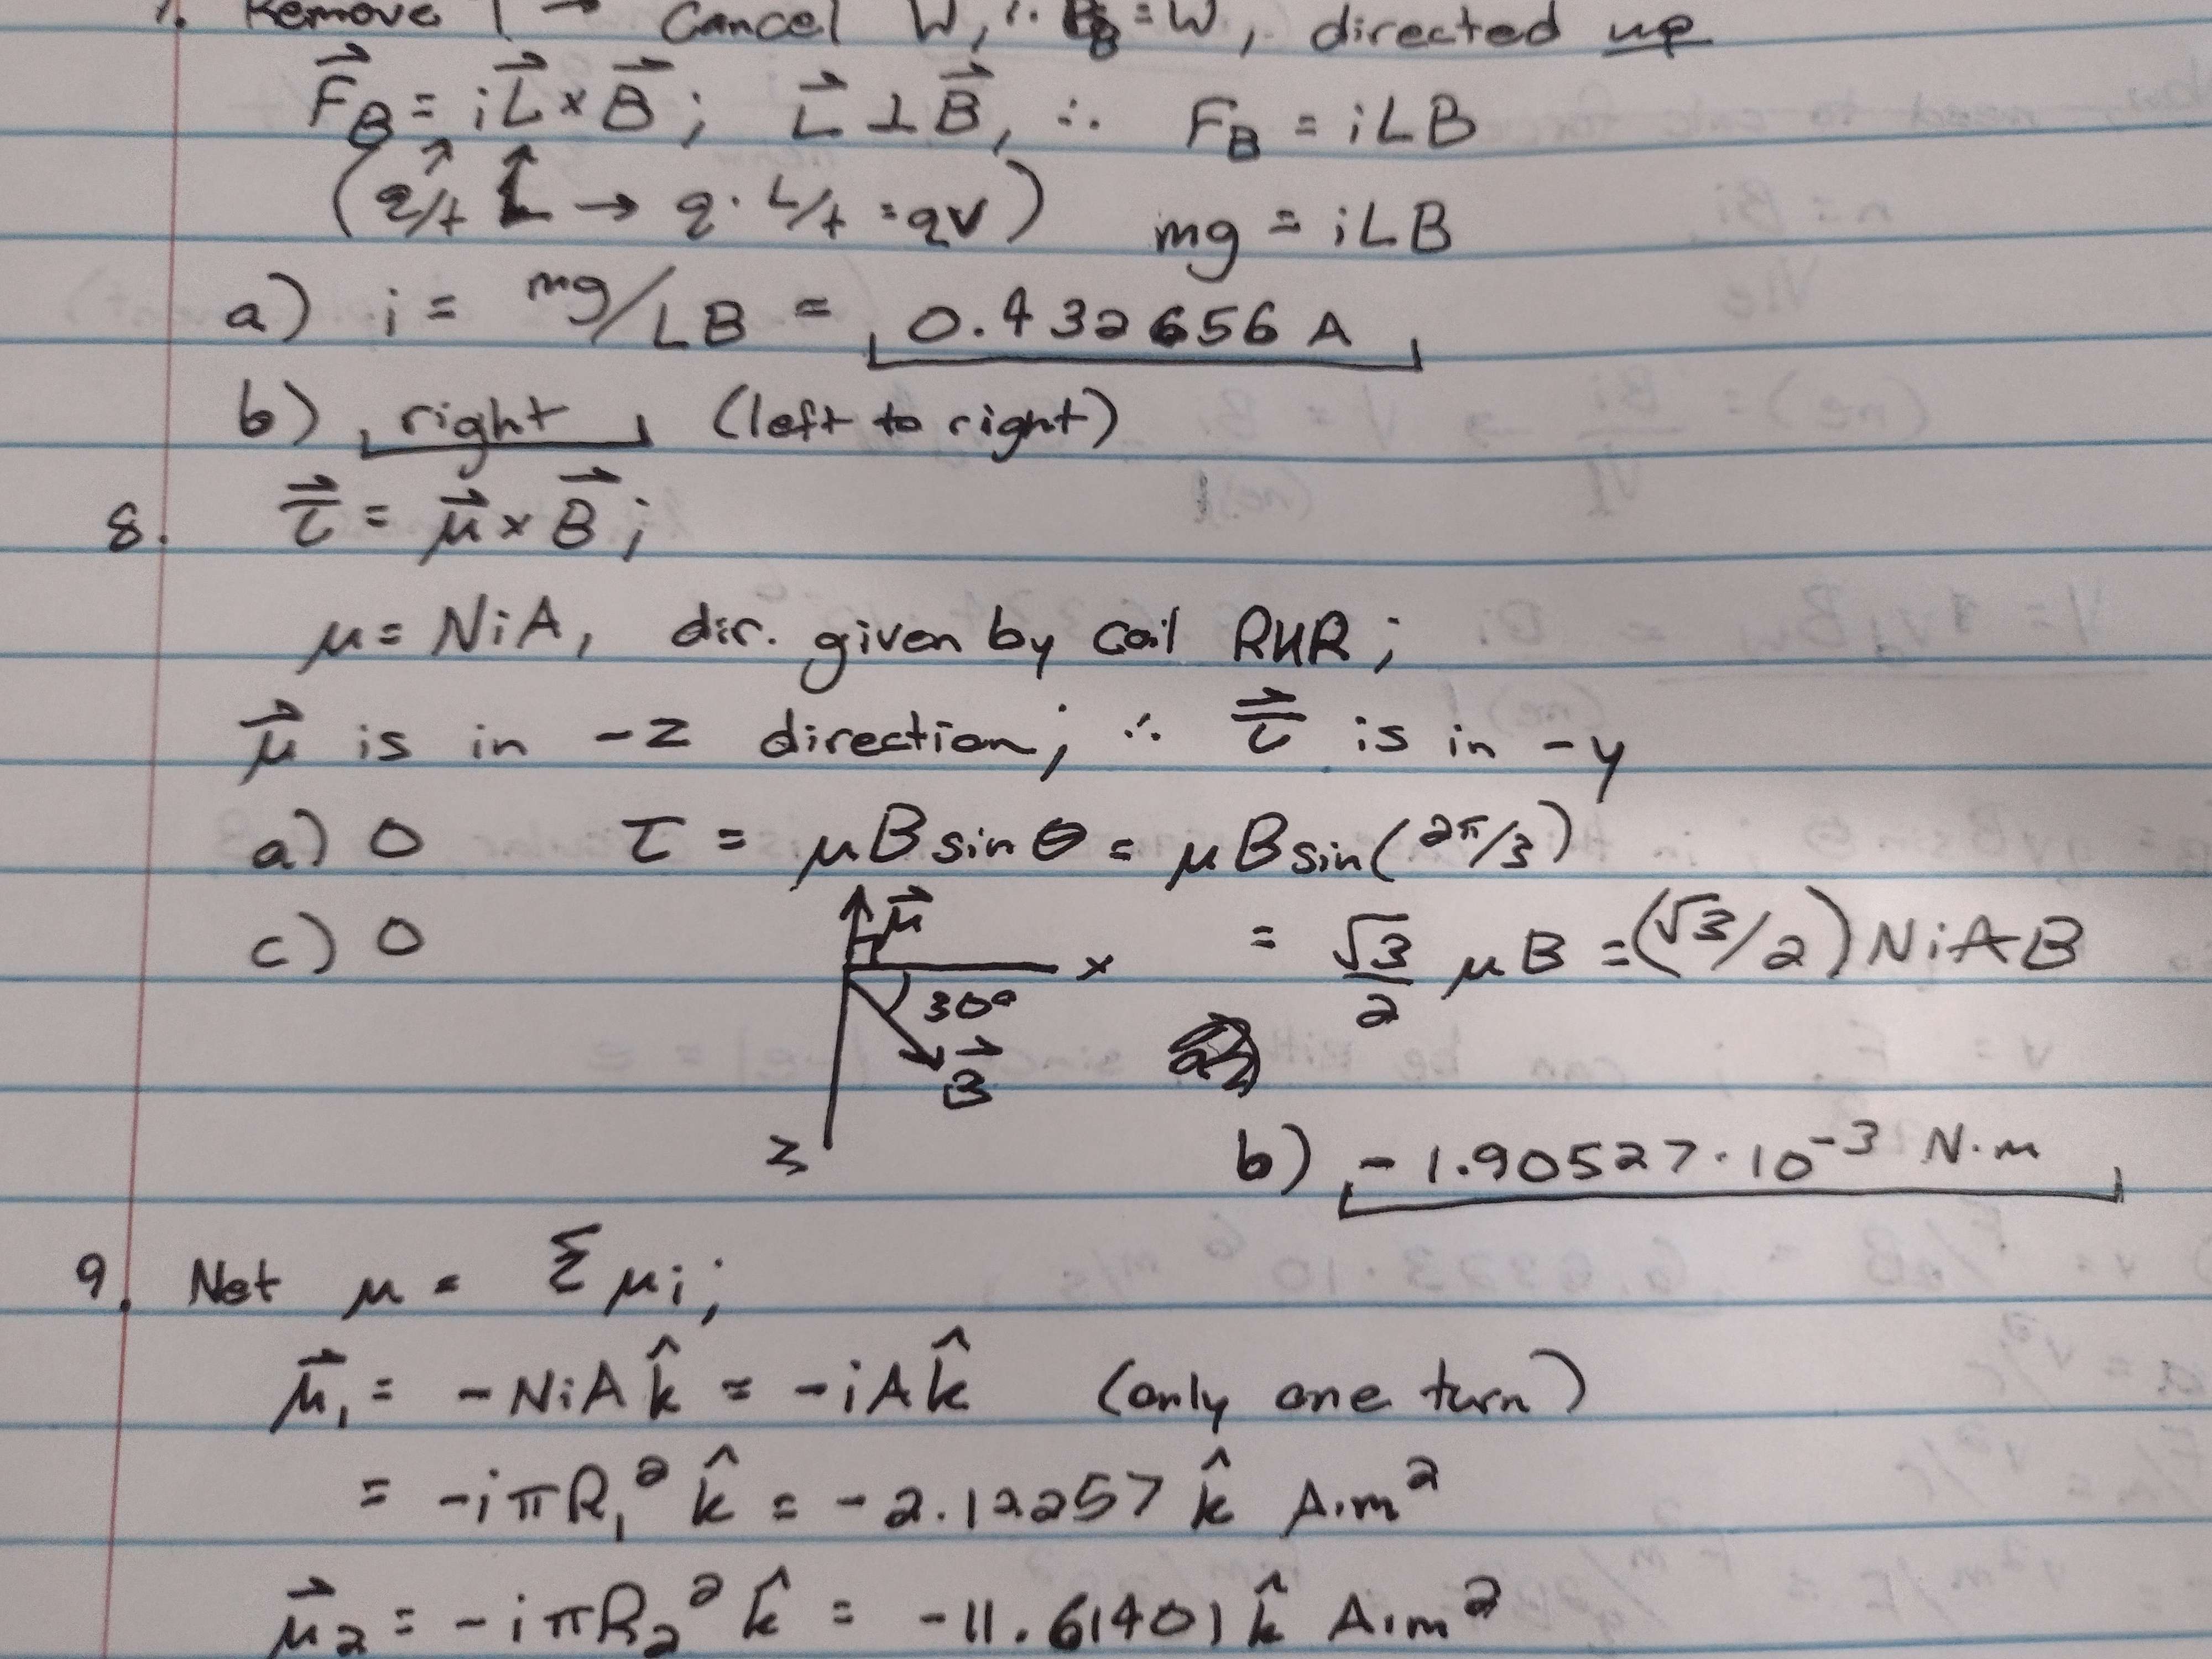 7. Remove T → Cancel W, ∴ F_B = W, directed up
F⃗_B = iL⃗ × B⃗; L⃗ ⊥ B⃗, ∴ F_B = iLB
(q/t L → q · L/t = qv) mg = iLB
a) i = mg/LB = 0.432656 A
b) right (left to right)
8. τ⃗ = μ⃗ × B⃗;
μ = NiA, dir. given by coil RHR;
μ⃗ is in -z direction; ∴ τ⃗ is in -y
a) 0 τ = μB sin θ = μB sin(2π/3)
c) 0 = √3/2 μB = (√3/2) NiAB
μ⃗
x
30°
B⃗
z
b) -1.90527 · 10⁻³ N·m
9. Net μ = Σ μi;
μ⃗₁ = -NiA k̂ = -iA k̂ (only one turn)
= -iπR₁² k̂ = -2.12257 k̂ A·m²
μ⃗₂ = -iπR₂² k̂ = -11.61401 k̂ A·m²